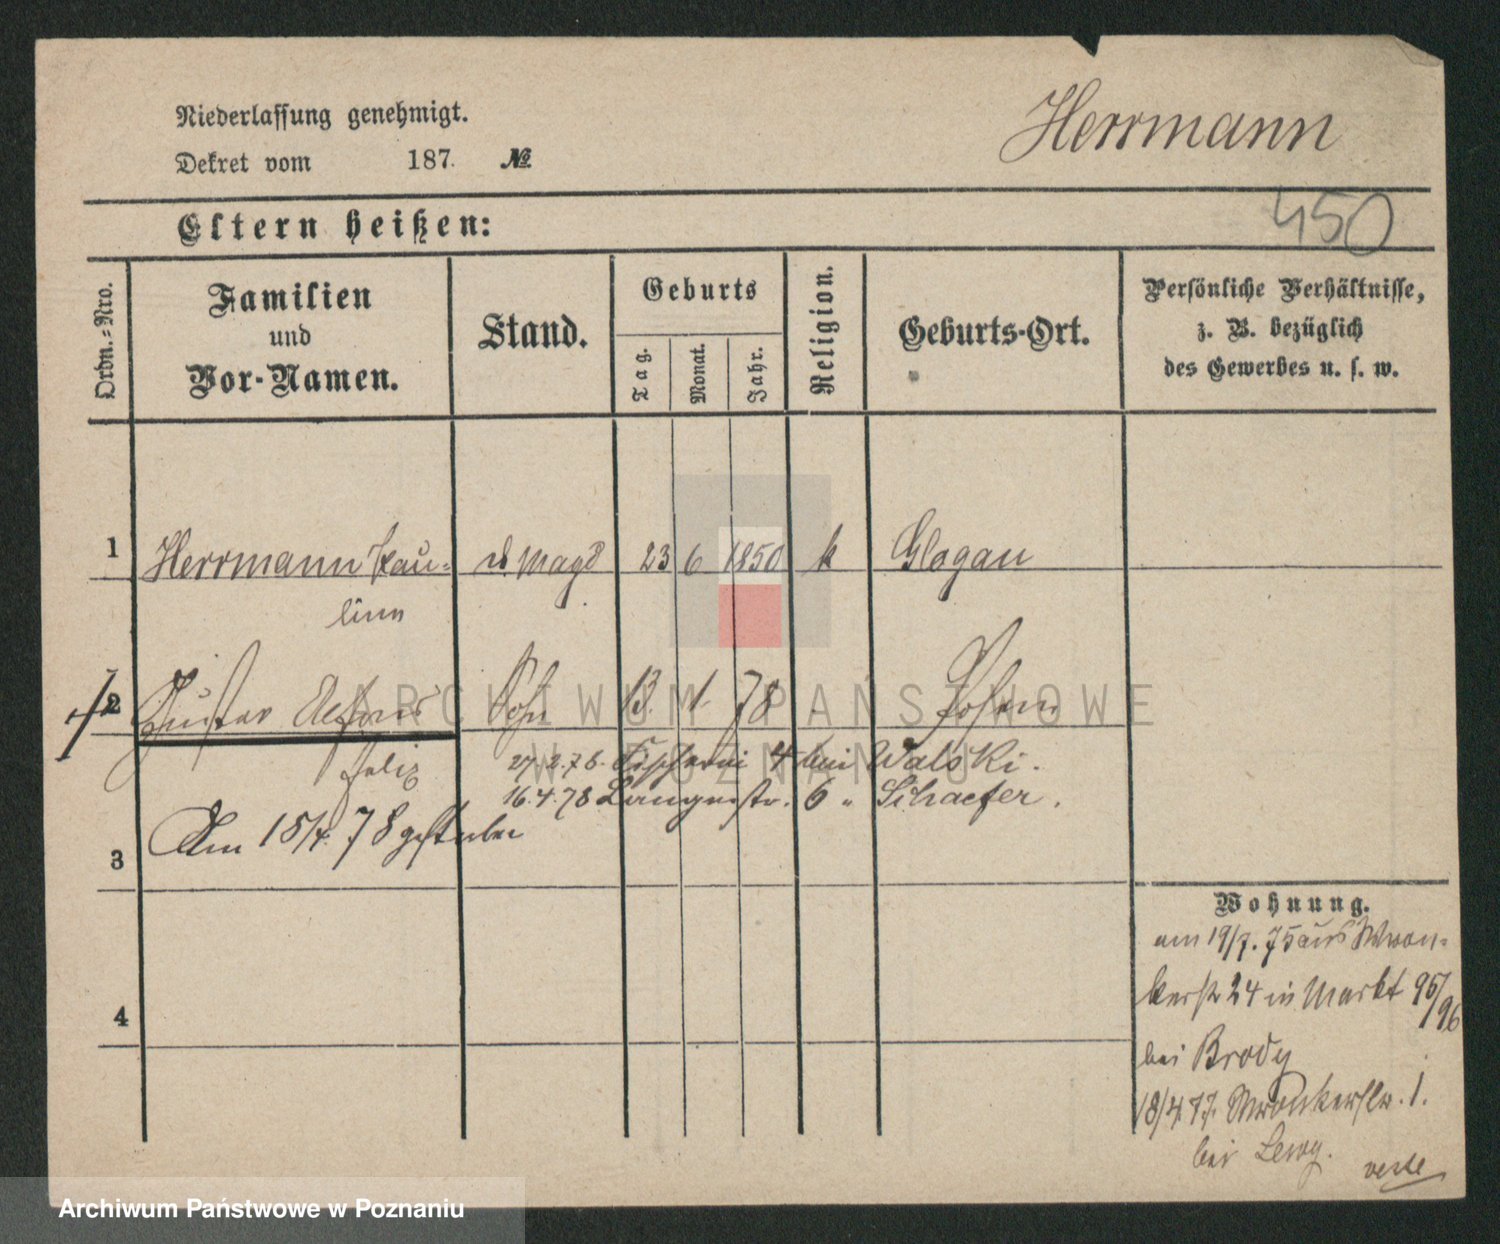 Niederlassung genehmigt.
Dekret vom 187. №
Herrmann
Eltern heißen:
450
Ordn.=Nro.
Familien
und
Vor-Namen.
Stand.
Geburts
Tag.
Monat.
Jahr.
Religion.
Geburts-Ort.
Persönliche Verhältnisse,
z. B. bezüglich
des Gewerbes u. s. w.
1 Herrmann Pau= Magd 23 6 1850 k Glogau
line
2 Gustav Sohn 13. 1. 78 Posen
Felix
27.2.78. Fischerei 4 bei Walski.
16.4.78 Langestr. 6 " Schaefer.
3 Am 15/4. 78 gestorben
4
Wohnung.
am 19/7. 75 aus Wron-
kerstr 24 in Markt 95/96
bei Brody
18/4 77. Wronkerstr. 1.
bei Lewy.
verte
ARCHIWUM PAŃSTWOWE
W POZNANIU
Archiwum Państwowe w Poznaniu